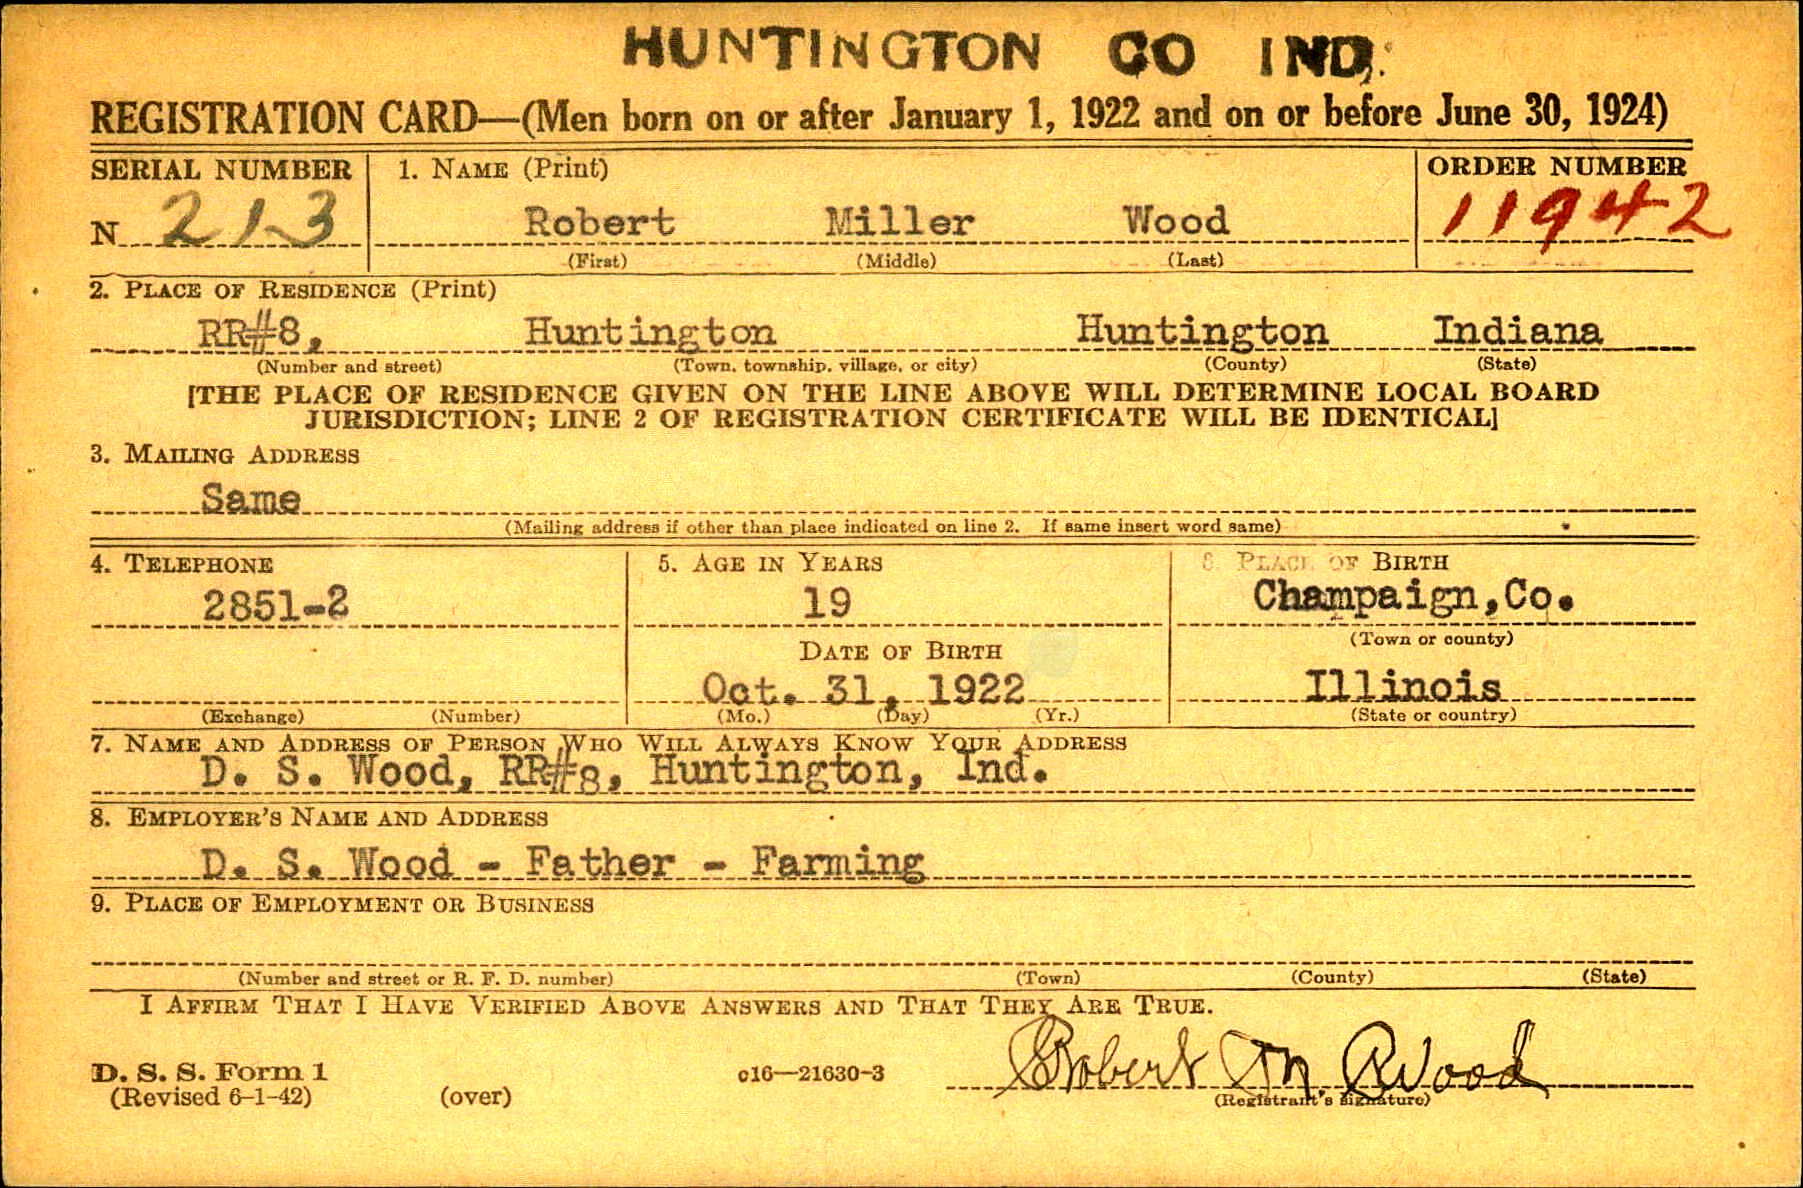 HUNTINGTON CO IND.
REGISTRATION CARD—(Men born on or after January 1, 1922 and on or before June 30, 1924)
SERIAL NUMBER 1. NAME (Print) ORDER NUMBER
N 213 Robert Miller Wood 11942
(First) (Middle) (Last)
2. PLACE OF RESIDENCE (Print)
RR#8, Huntington Huntington Indiana
(Number and street) (Town, township, village, or city) (County) (State)
[THE PLACE OF RESIDENCE GIVEN ON THE LINE ABOVE WILL DETERMINE LOCAL BOARD
JURISDICTION; LINE 2 OF REGISTRATION CERTIFICATE WILL BE IDENTICAL]
3. MAILING ADDRESS
Same
(Mailing address if other than place indicated on line 2. If same insert word same)
4. TELEPHONE 5. AGE IN YEARS 6. PLACE OF BIRTH
2851-2 19 Champaign,Co.
(Town or county)
DATE OF BIRTH
Oct. 31, 1922 Illinois
(Exchange) (Number) (Mo.) (Day) (Yr.) (State or country)
7. NAME AND ADDRESS OF PERSON WHO WILL ALWAYS KNOW YOUR ADDRESS
D. S. Wood, RR#8, Huntington, Ind.
8. EMPLOYER'S NAME AND ADDRESS
D. S. Wood - Father - Farming
9. PLACE OF EMPLOYMENT OR BUSINESS
(Number and street or R. F. D. number) (Town) (County) (State)
I AFFIRM THAT I HAVE VERIFIED ABOVE ANSWERS AND THAT THEY ARE TRUE.
Robert M. Wood
D. S. S. Form 1 c16—21630-3
(Revised 6-1-42) (over) (Registrant's signature)